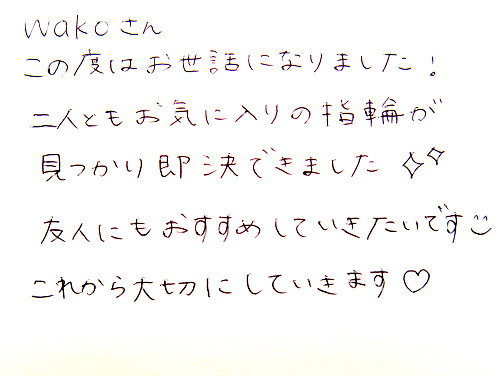 wakoさん
この度はお世話になりました！
二人ともお気に入りの指輪が
見つかり即決できました✧✧
友人にもおすすめしていきたいです☺
これから大切にしていきます♡